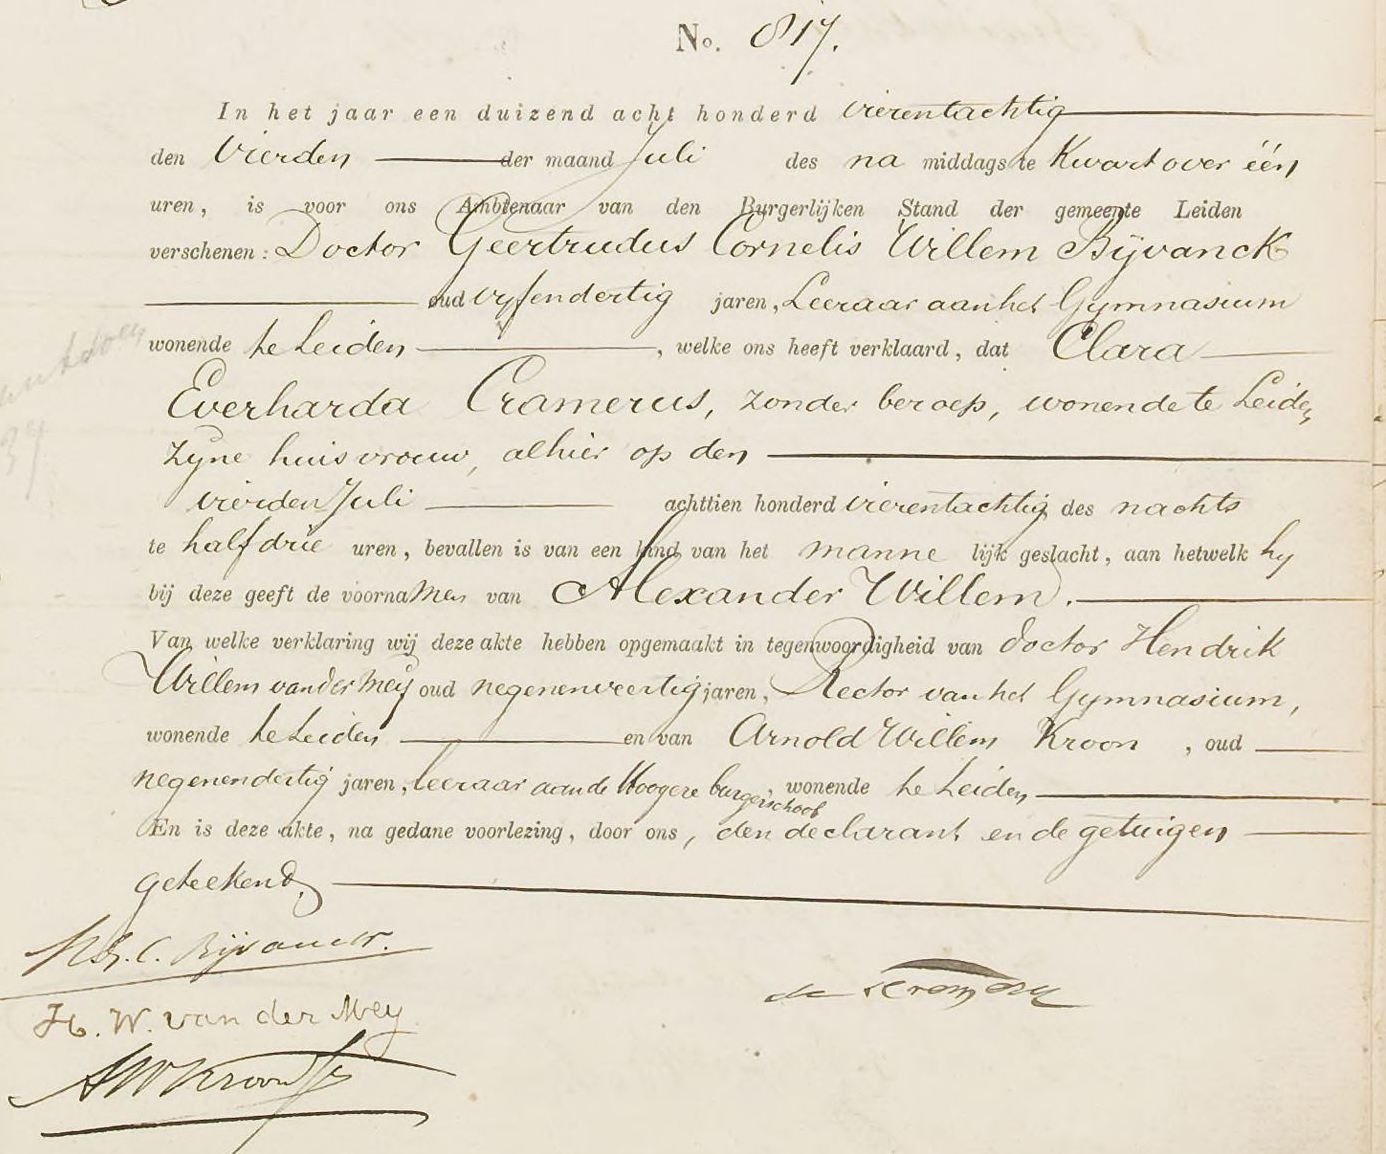 No. 817.
In het jaar een duizend acht honderd vierentachtig
den vierden der maand Juli des na middags te kwart over één
uren, is voor ons Ambtenaar van den Burgerlijken Stand der gemeente Leiden
verschenen: Doctor Geertrudus Cornelis Willem Bijvanck
oud vyfendertig jaren, Leeraar aan het Gymnasium
wonende te Leiden, welke ons heeft verklaard, dat Clara
Everharda Cramerus, zonder beroep, wonende te Leiden,
zyne huisvrouw, alhier op den
vierden Juli achttien honderd vierentachtig des nachts
te half drie uren, bevallen is van een kind van het manne lijk geslacht, aan hetwelk hy
bij deze geeft de voornamen van Alexander Willem.
Van welke verklaring wij deze akte hebben opgemaakt in tegenwoordigheid van doctor Hendrik
Willem van der Mey oud negenenveertig jaren, Rector van het Gymnasium,
wonende te Leiden en van Arnold Willem Kroon, oud
negenendertig jaren, leeraar aan de Hoogere burgerschool, wonende te Leiden
En is deze akte, na gedane voorlezing, door ons, den declarant en de getuigen
geteekend.
Bijvanck.
H. W. van der Mey
AWKroon